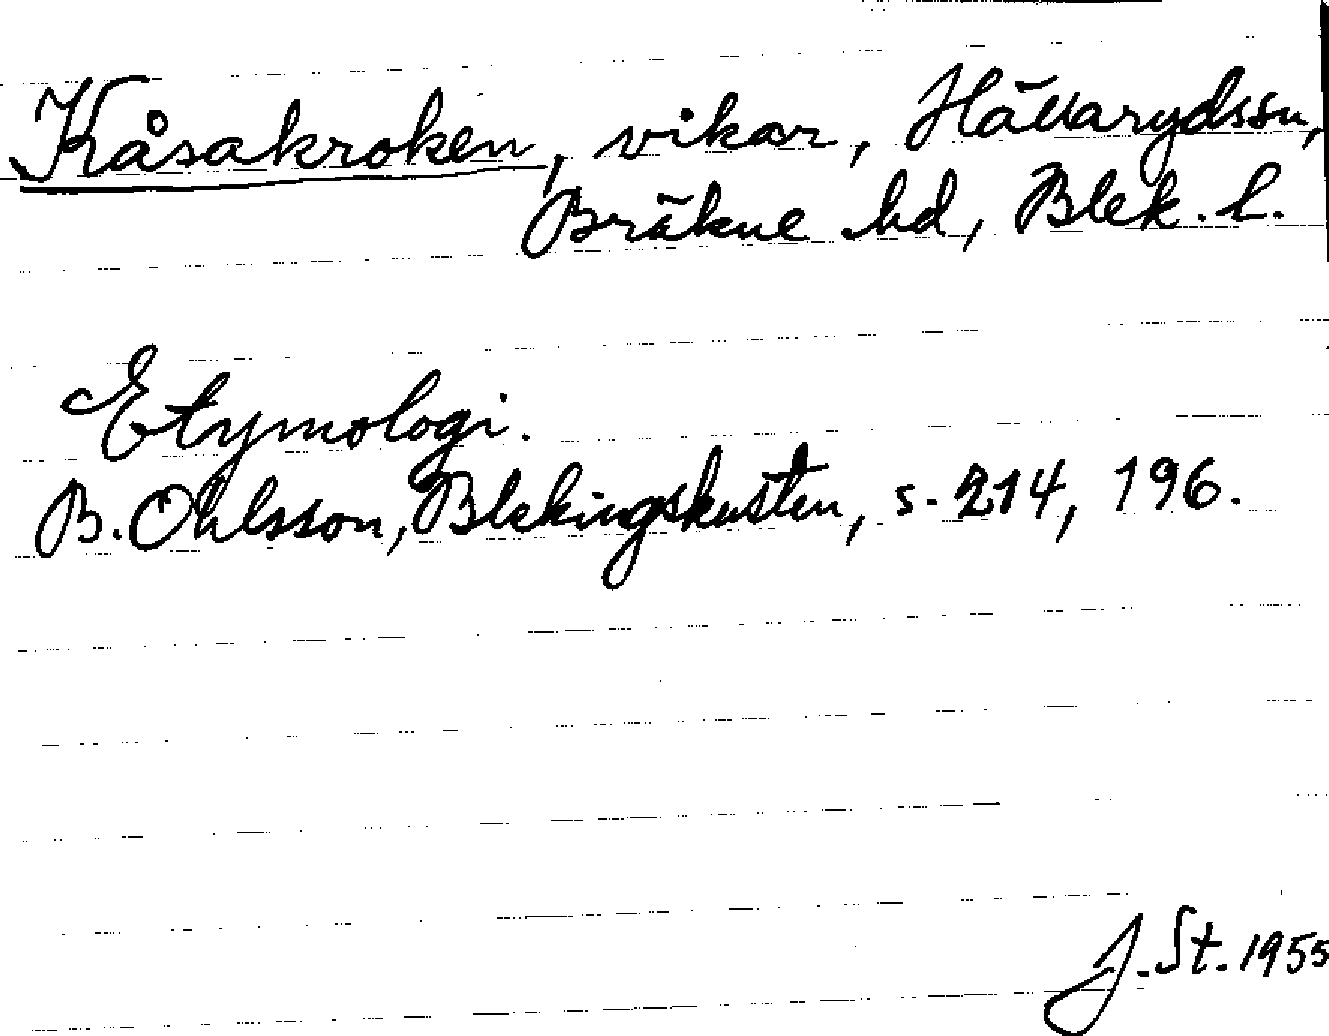 Kåsakroken, vikar, Hällarydssn,
Bräkne hd, Blek. l.
Etymologi.
B. Ohlsson, Blekingskusten, s. 214, 196.
J. St. 1955